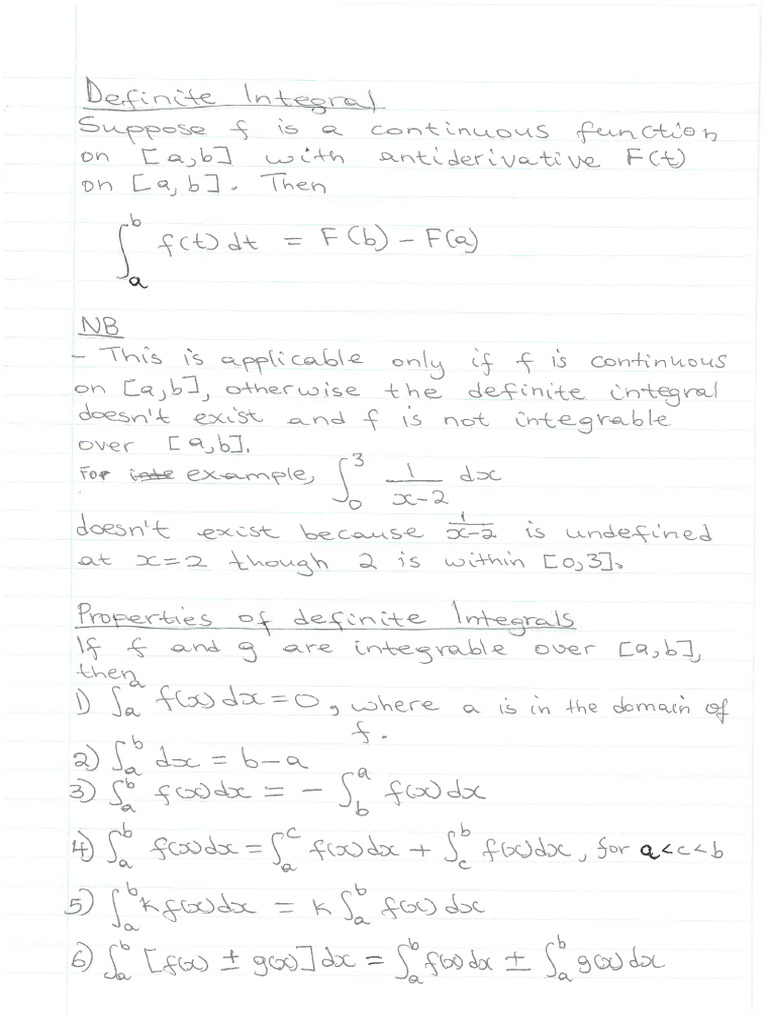 Definite Integral
Suppose f is a continuous function
on [a,b] with antiderivative F(t)
on [a,b]. Then
∫_a^b f(t) dt = F(b) - F(a)
NB
- This is applicable only if f is continuous
on [a,b], otherwise the definite integral
doesn't exist and f is not integrable
over [a,b].
For example, ∫_0^3 1/(x-2) dx
doesn't exist because 1/(x-2) is undefined
at x=2 though 2 is within [0,3].
Properties of definite Integrals
If f and g are integrable over [a,b],
then
1) ∫_a^a f(x) dx = 0, where a is in the domain of
f.
2) ∫_a^b dx = b-a
3) ∫_a^b f(x) dx = - ∫_b^a f(x) dx
4) ∫_a^b f(x) dx = ∫_a^c f(x) dx + ∫_c^b f(x) dx, for a<c<b
5) ∫_a^b k f(x) dx = k ∫_a^b f(x) dx
6) ∫_a^b [f(x) ± g(x)] dx = ∫_a^b f(x) dx ± ∫_a^b g(x) dx